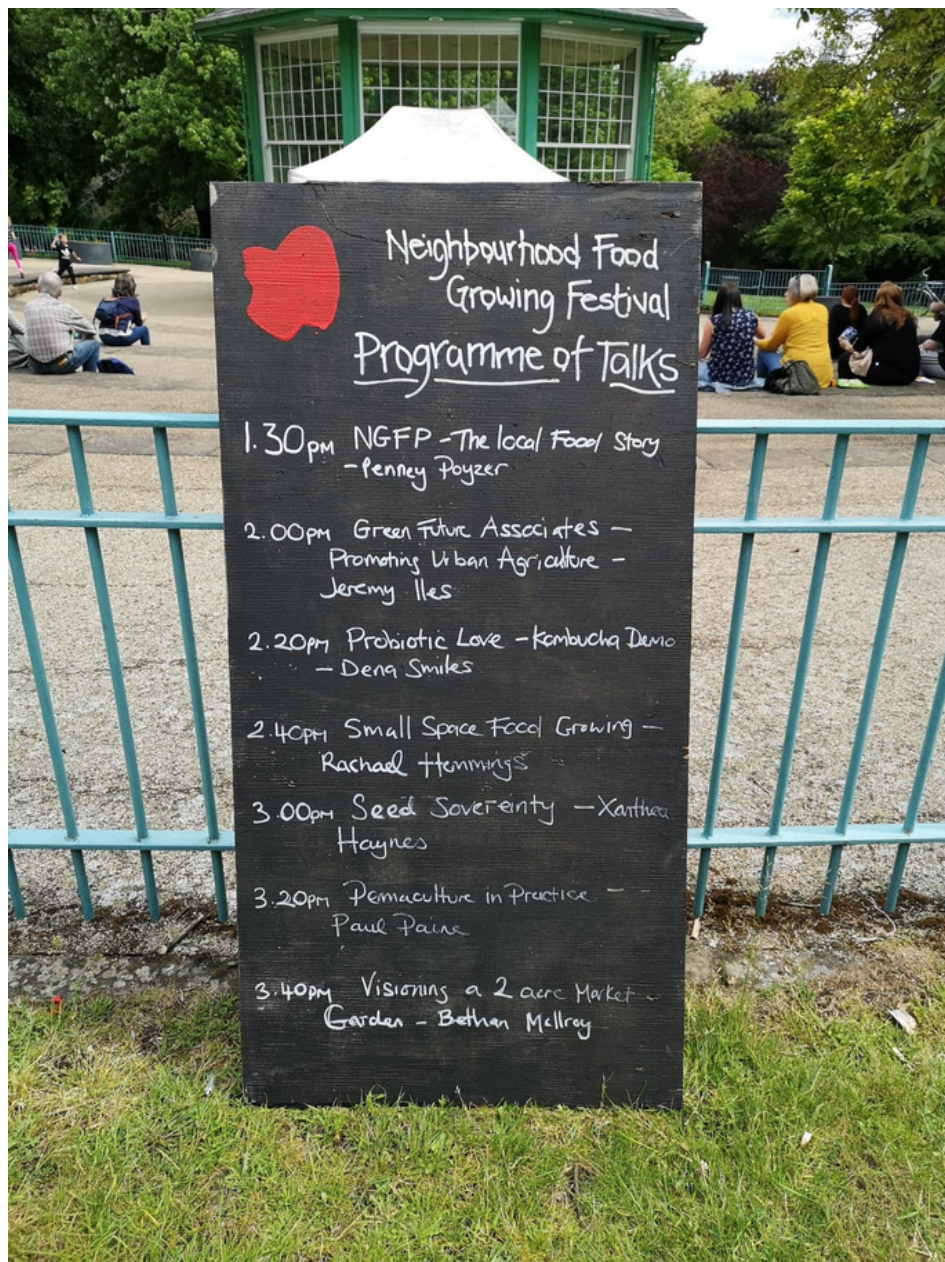 Neighbourhood Food
Growing Festival
Programme of Talks
1.30pm NGFP - The local Food Story
- Penney Poyzer
2.00pm Green Future Associates -
Promoting Urban Agriculture -
Jeremy Iles
2.20pm Probiotic Love - Kombucha Demo
- Dena Smiles
2.40pm Small Space Food Growing -
Rachael Hemmings
3.00pm Seed Sovereinty - Xanthea
Haynes
3.20pm Permaculture in Practice -
Paul Paine
3.40pm Visioning a 2 acre Market -
Garden - Bethan McIlroy